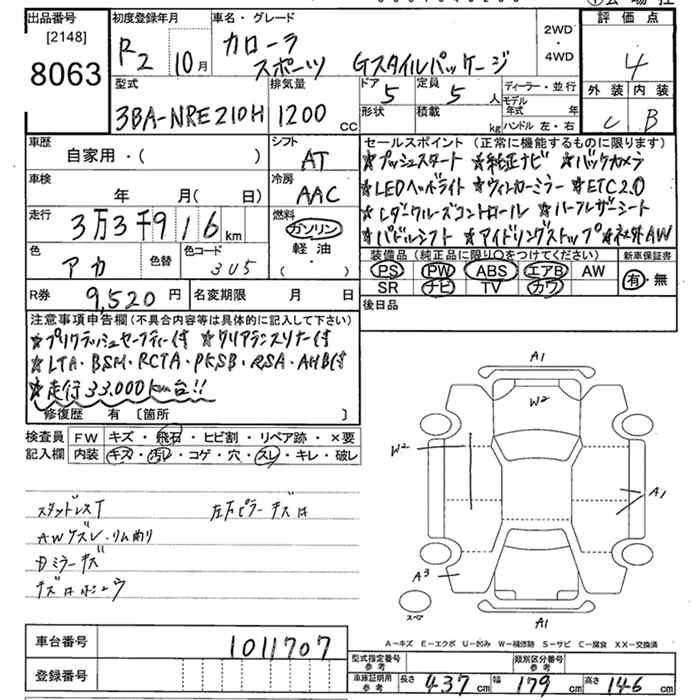 出品番号
[2148]
8063
初度登録年月
R2 10月
車名・グレード
カローラ
スポーツ Gスタイルパッケージ
2WD
・
4WD
評価点
4
外装 内装
C B
型式
3BA-NRE210H
排気量
1200 cc
ドア 5
形状
定員 5 人
積載 kg
ディーラー・並行
モデル年式 年
ハンドル 左・右
車歴
自家用・( )
シフト
AT
車検
年 月( 日)
冷房
AAC
走行
3万3千916 km
燃料
ガソリン
・
軽油
・
( )
色
アカ
色替
色コード
3U5
R券 9,520 円
名変期限 月 日
セールスポイント (正常に機能するものに限ります)
★プッシュスタート ★純正ナビ ★バックカメラ
★LEDヘッドライト ★ウィンカーミラー ★ETC2.0
★レダークルーズコントロール ★ハーフレザーシート
★パドルシフト ★アイドリングストップ ★社外AW
装備品 (純正品に限り○をつけてください)
PS PW ABS エアB AW
SR ナビ TV カワ
新車保証書
有・無
後日品
注意事項申告欄 (不具合内容等は具体的に記入して下さい)
★プリクラッシュセーフティー付 ★クリアランスソナー付
★LTA・BSM・RCTA・PKSB・RSA・AHB付
★走行33,000km台!!
修復歴 有 〔箇所 〕
検査員 FW キズ・飛石・ヒビ割・リペア跡・×要
記入欄 内装 キズ・汚レ・コゲ・穴・スレ・キレ・破レ
スタッドレスT 左下ピラーキズ
AWケズレ・リム削り
Dミラーキズ
A1
W2
W2
A1
A3
スペア
A1
A－キズ E－エクボ U－凹み W－補修跡 S－サビ C－腐食 XX－交換済
車台番号 1011707
登録番号
型式指定番号 参考
類別区分番号 参考
車庫証明用 参考 長さ 437 cm 幅 179 cm 高さ 146 cm